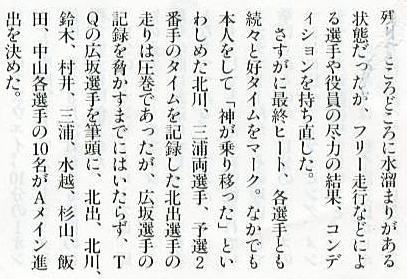 残り、ところどころに水溜まりがある
状態だったが、フリー走行などによ
る選手や役員の尽力の結果、コンデ
ィションを持ち直した。
さすがに最終ヒート、各選手とも
続々と好タイムをマーク。なかでも
本人をして「神が乗り移った」とい
わしめた北川、三浦両選手、予選2
番手のタイムを記録した北出選手の
走りは圧巻であったが、広坂選手の
記録を脅かすまでにはいたらず、T
Qの広坂選手を筆頭に、北出、北川、
鈴木、村井、三浦、水越、杉山、飯
田、中山各選手の10名がAメイン進
出を決めた。